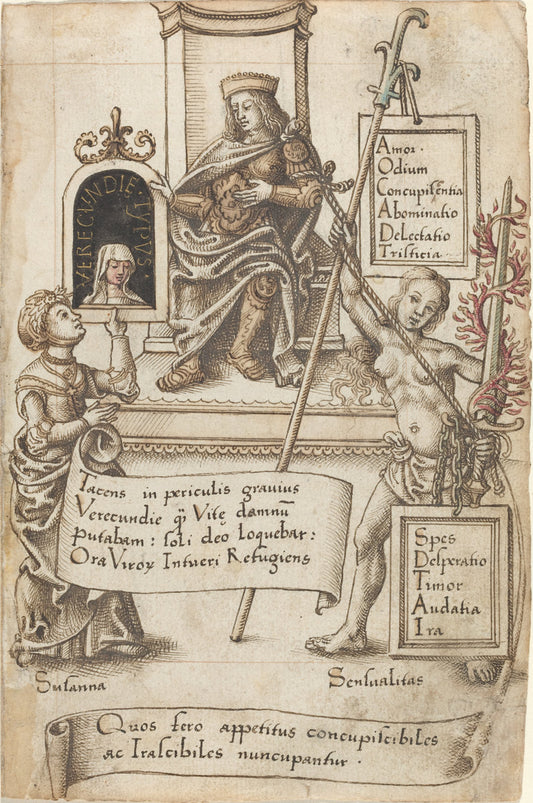 VERECUNDIE TYPUS
Amor.
Odium
Concupiſentia
Abominatio
Delectatio
Triſticia.
Tacens in periculis gravius
Verecundie qȝ Vitę damnū
Putabam: ſoli deo loquebar:
Ora Viroꝝ Intueri Refugiens
Spes
Deſperatio
Timor
Audatia
Ira
Suſanna
Senſualitas
Quos fero appetitus concupiſcibiles
ac Iraſcibiles nuncupantur.